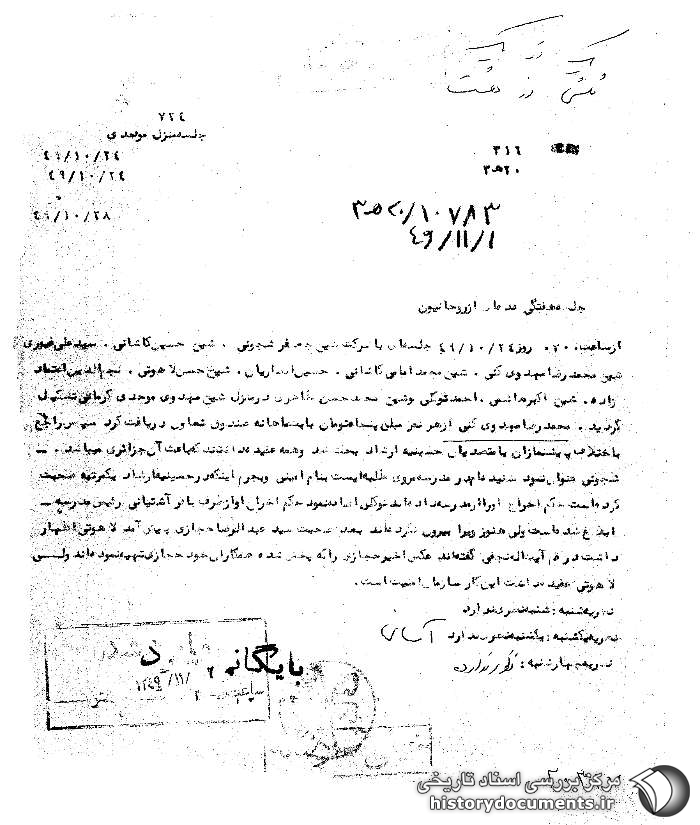 ٧٢٤
جلسه منزل موحدی
٤٩/١٠/٢٤
٤٩/١٠/٢٤
٤٩/١٠/٢٨
٣١٦
٢٠ه٣
٢٠ه٣/١٠٧٨٣
٤٩/١١/١
جلسه هفتگی عده‌ای از روحانیون
از ساعت روز ٤٩/١٠/٢٤ جلسه‌ای با شرکت شیخ جعفر شجونی . شیخ حسین کاشانی . سید علی غیوری
شیخ محمد رضا مهدوی کنی . شیخ محمد امامی کاشانی . حسین انصاریان . شیخ حسن لاهوتی . نجم الدین اعتماد
زاده . شیخ اکبر هاشمی . احمد توکلی و شیخ محمد حسن طاهری در منزل شیخ مهدوی موحدی کرمانی تشکیل
گردید . محمد رضا مهدوی کنی از هر نفر مبلغ پنجاه تومان بابت ماهانه صندوق تعاون دریافت کرد سپس راجع
باختلاف پیشنمازان با متصدیان حسینیه ارشاد بحث شد و همه عقیده داشتند که باعث آن جزائری میباشد . ـ
شجونی عنوان نمود شنیده‌ام در مدرسه مروی طلبه‌ایست بنام امینی و بجرم اینکه در حسینیه ارشاد یکمرتبه صحبت
کرده است حکم اخراج او را از مدرسه داده‌اند توکلی اضافه نمود حکم اخراج او از طرف باقر آشتیانی رئیس مدرسه ـ
ابلاغ شده است ولی هنوز ویرا بیرون نکرده‌اند بعد صحبت سید عبدالرضا حجازی پیش آمد لاهوتی اظهار
داشت در قم آیت اله نجفی گفته‌اند عکس اخیر حجازی را که پخش شده همکاران خود حجازی تهیه نموده‌اند ولی
لاهوتی عقیده داشت این کار سازمان امنیت است .
نظریه شنبه : شنبه نظری ندارد
نظریه یکشنبه : یکشنبه نظری ندارد آسایش
نظریه چهارشنبه : نظری ندارد
بایگانی
١٣٤٩/١١/
مرکز بررسی اسناد تاریخی
historydocuments.ir